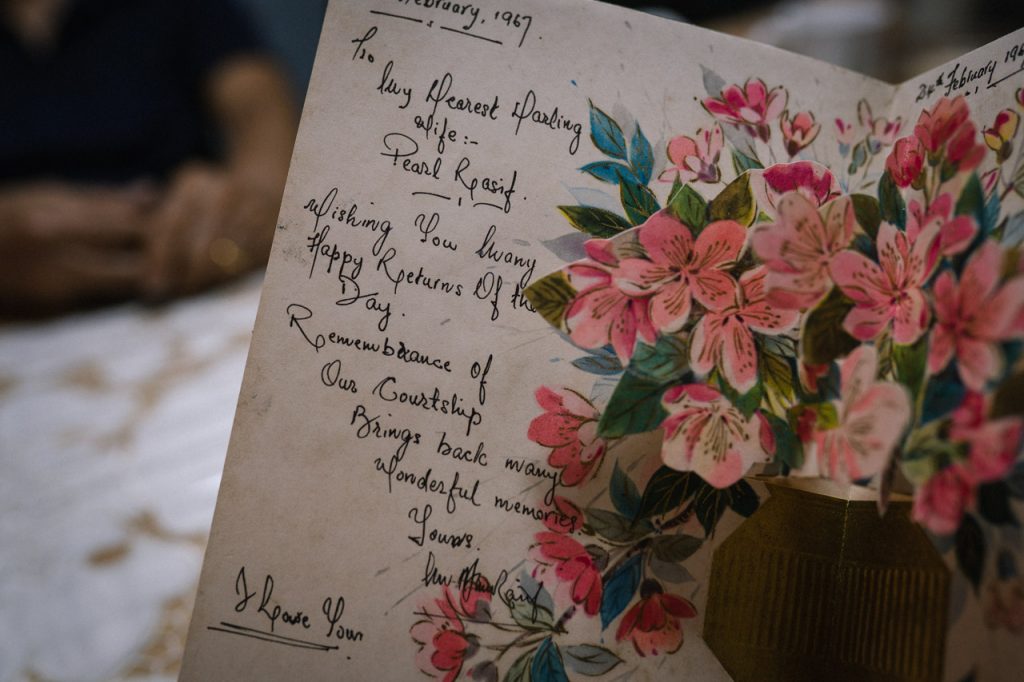 February, 1967.
To
My Dearest Darling
Wife:-
Pearl Rasif.
Wishing You Many
Happy Returns Of the
Day.
Remembrance of
Our Courtship
Brings back many
Wonderful memories
Yours.
I Love You.
24th February, 196